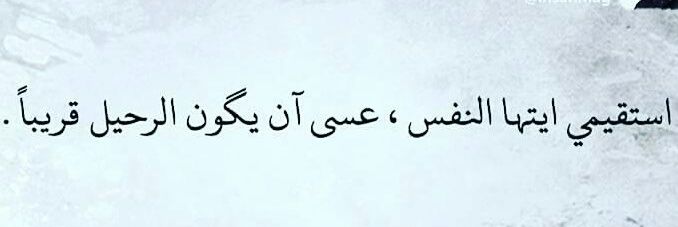 استقيمي ايتها النفس ، عسى آن يگون الرحيل قريباً .